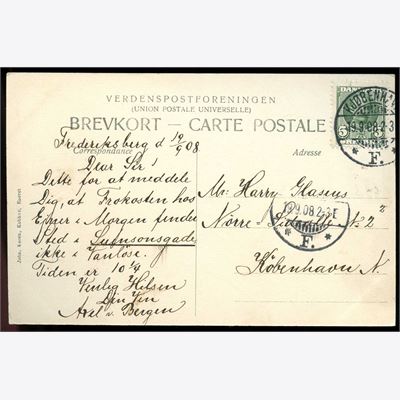 VERDENSPOSTFORENINGEN
(UNION POSTALE UNIVERSELLE)
BREVKORT – CARTE POSTALE
Correspondance
Adresse
Frederiksberg d 19/9 08
Dear Sir!
Dette for at meddele
Dig, at Frokosten hos
Ejner i Morgen finder
Sted i
ikke i Vanløse.
Tiden er 10½
Venlig Hilsen
Din Ven
Axel v. Bergen
Mr. Harry
Nørre 2²
København N.
DANMARK
5 5
KJØBENHAVN
19.9.08.2-3E
* F. *
19.9.08.2-3E
* F. *